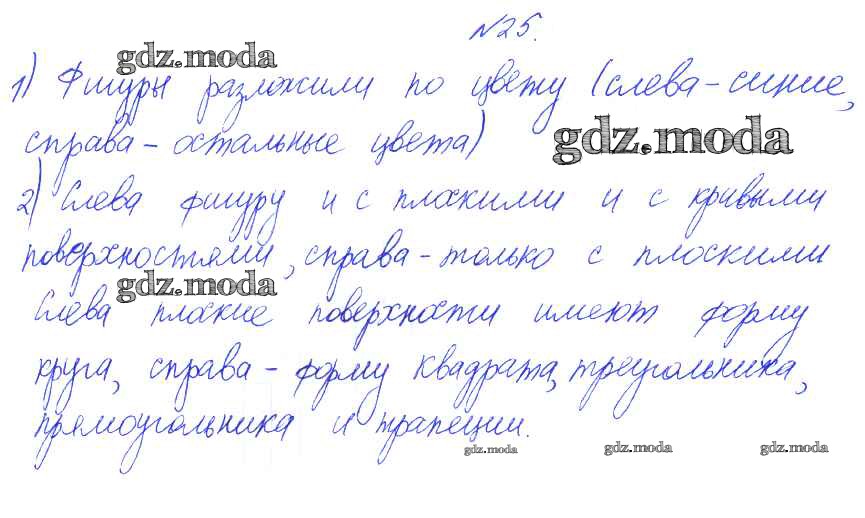 №25.
gdz.moda
1) Фигуры разложили по цвету (слева-синие,
справа-остальные цвета)
gdz.moda
2) Слева фигуру и с плоскими и с кривыми
поверхностями, справа-только с плоскими
gdz.moda
Слева плоские поверхности имеют форму
круга, справа-форму квадрата, треугольника,
прямоугольника и трапеции.
gdz.moda gdz.moda gdz.moda